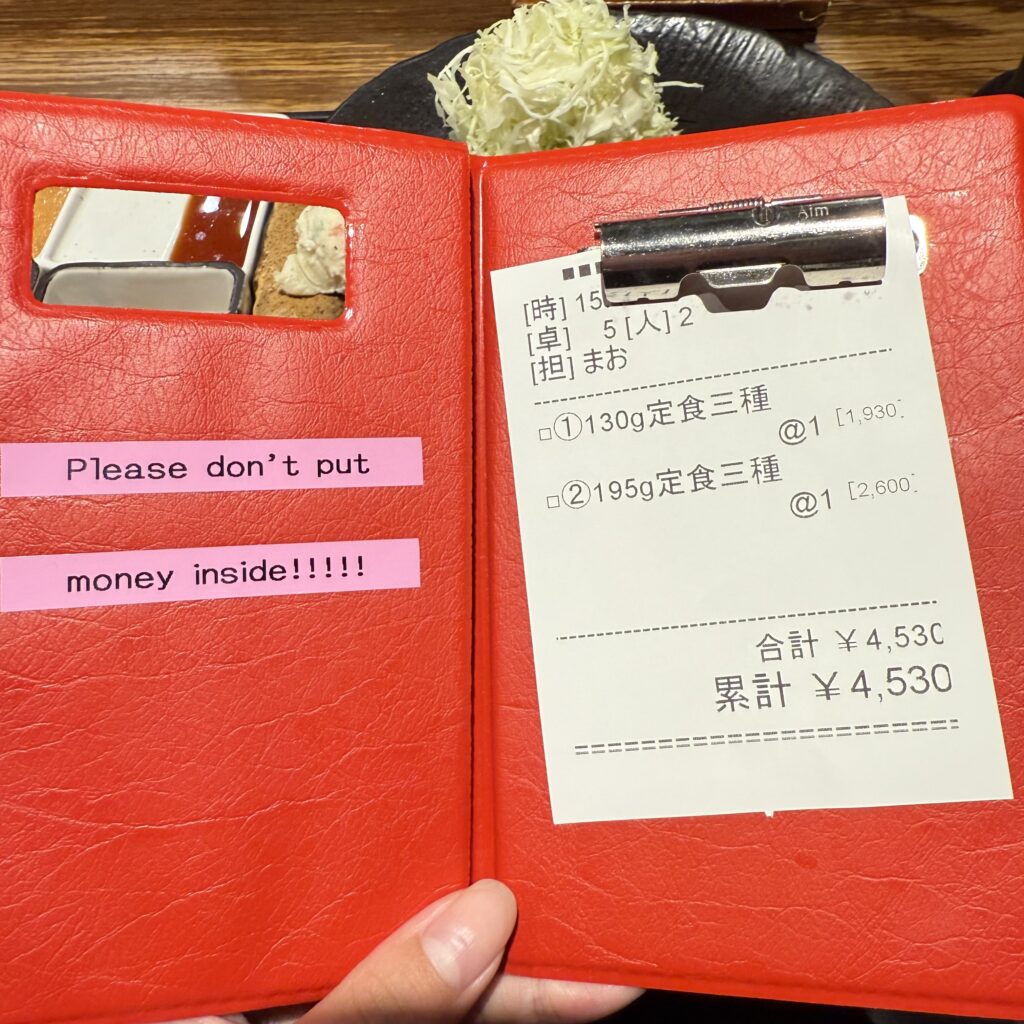 Please don't put
money inside!!!!!
Aim
[時] 15
[卓] 5 [人] 2
[担] まお
□①130g定食三種
@1 [1,930]
□②195g定食三種
@1 [2,600]
合計 ¥4,530
累計 ¥4,530